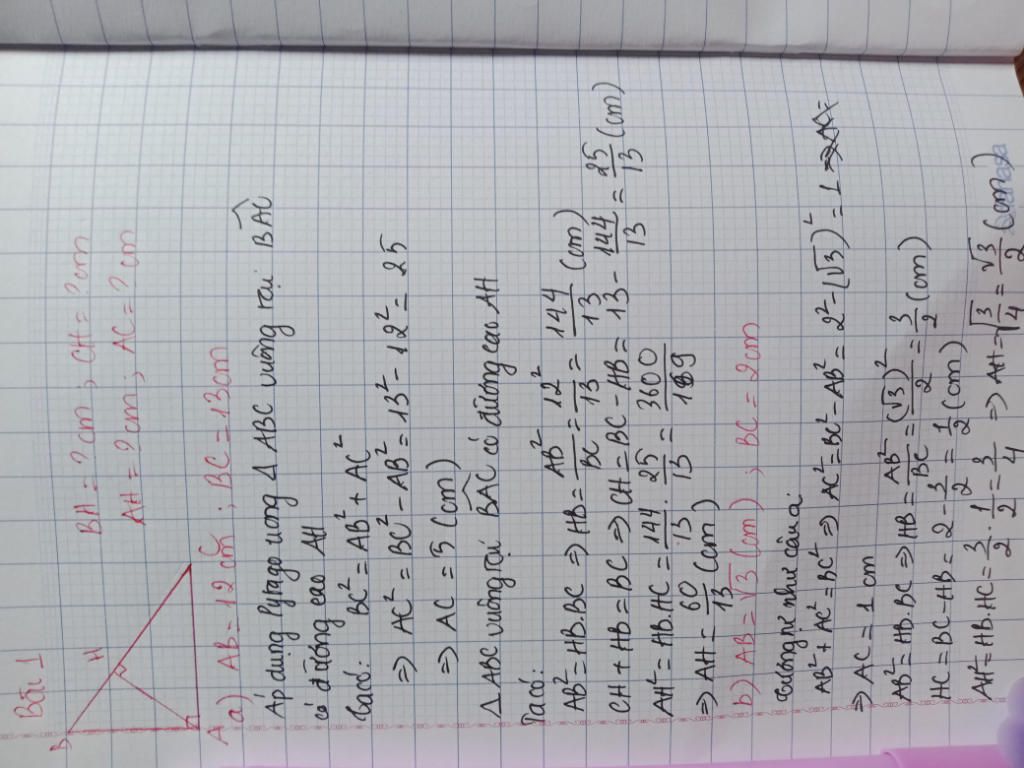 Bài 1
B
H
A
C
BH = ? cm ; CH = ? cm
AH = ? cm ; AC = ? cm
a) AB = 12 cm ; BC = 13 cm
Áp dụng Pytago trong Δ ABC vuông tại BAC
có đường cao AH
Ta có: BC² = AB² + AC²
⇒ AC² = BC² - AB² = 13² - 12² = 25
⇒ AC = 5 (cm)
Δ ABC vuông tại BAC có đường cao AH
Ta có:
AB² = HB.BC ⇒ HB = AB²/BC = 12²/13 = 144/13 (cm)
CH + HB = BC ⇒ CH = BC - HB = 13 - 144/13 = 25/13 (cm)
AH² = HB.HC = 144/13 . 25/13 = 3600/169
⇒ AH = 60/13 (cm)
b) AB = √3 (cm) ; BC = 2cm
Tương tự như câu a
AB² + AC² = BC² ⇒ AC² = BC² - AB² = 2² - (√3)² = 1
⇒ AC = 1 cm
AB² = HB.BC ⇒ HB = AB²/BC = (√3)²/2 = 3/2 (cm)
HC = BC - HB = 2 - 3/2 = 1/2 (cm)
AH² = HB.HC = 3/2 . 1/2 = 3/4 ⇒ AH = √3/4 = √3/2 (cm)